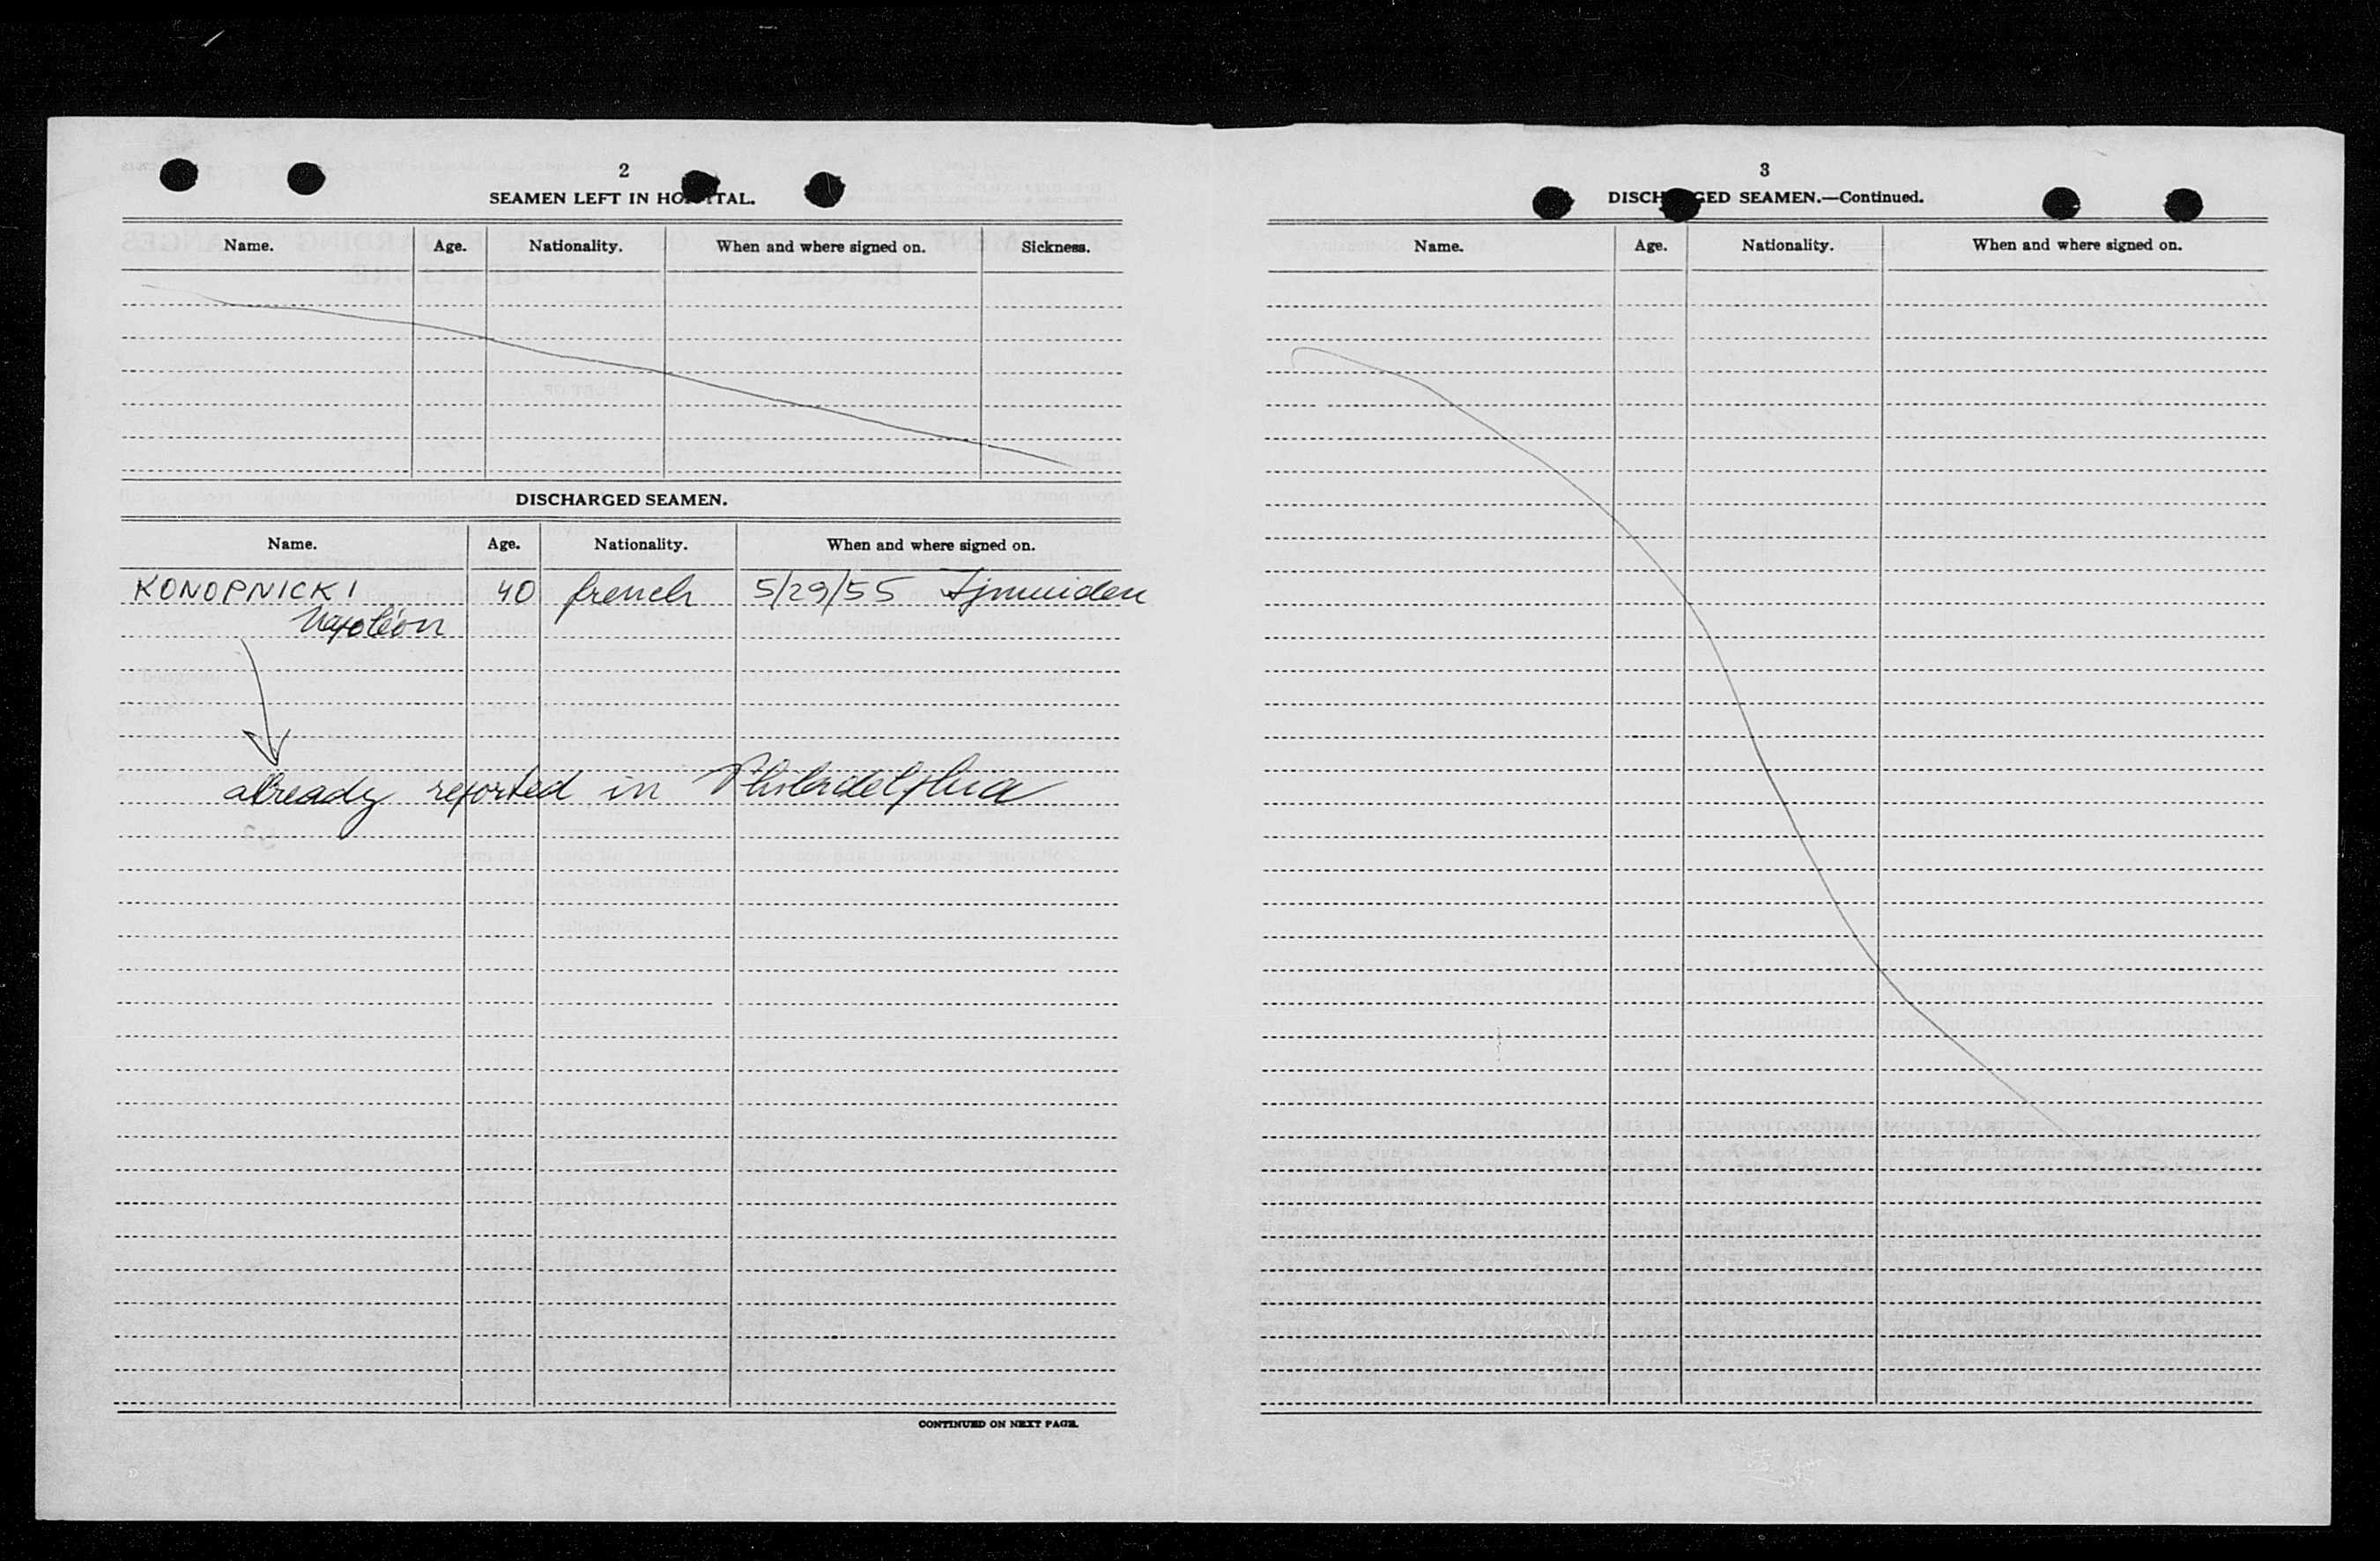 2
SEAMEN LEFT IN HOSPITAL.
Name. Age. Nationality. When and where signed on. Sickness.
DISCHARGED SEAMEN.
Name. Age. Nationality. When and where signed on.
KONOPNICKI 40 french 5/29/55 Ijmuiden
Napoléon
already reported in Philadelphia
CONTINUED ON NEXT PAGE.
3
DISCHARGED SEAMEN.—Continued.
Name. Age. Nationality. When and where signed on.